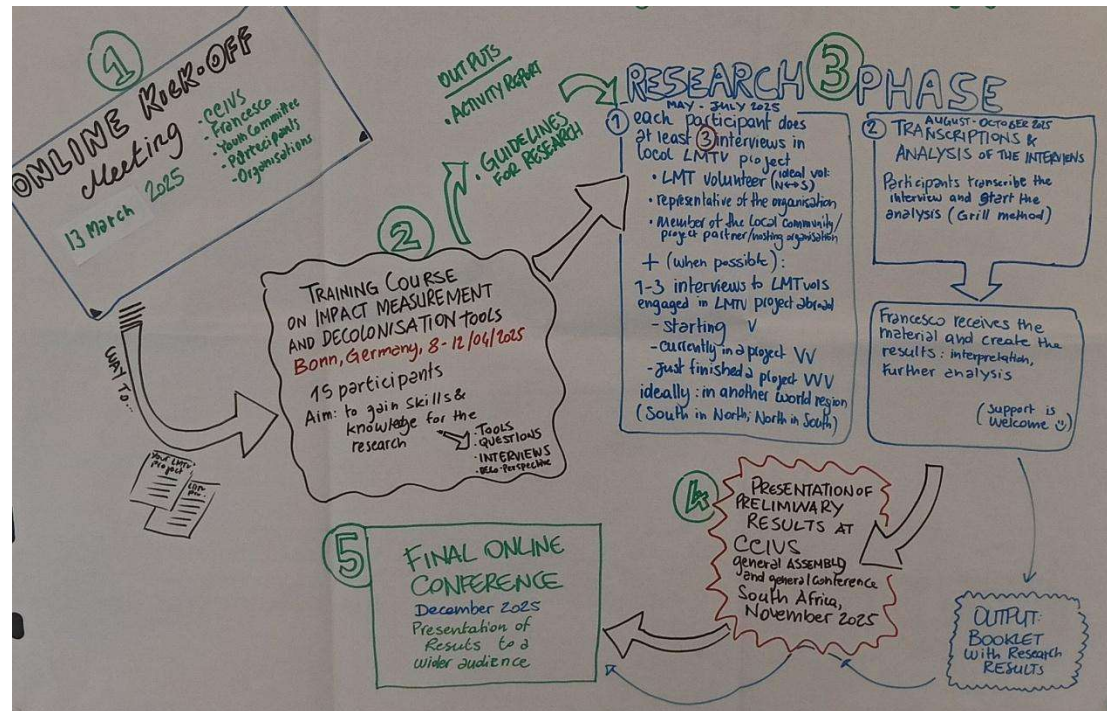 1
ONLINE KICK-OFF
Meeting
13 March 2025
- CCIVS
- Francesco
- Youth Committee
- Participants
- Organisations
WAY TO...
Your LMTV
project
2
TRAINING COURSE
ON IMPACT MEASUREMENT
AND DECOLONISATION TOOLS
Bonn, Germany, 8-12/04/2025
15 participants
Aim: to gain skills &
knowledge for the
research
· TOOLS
· QUESTIONS
· INTERVIEWS
· DECO-Perspective
OUTPUTS
· ACTIVITY REPORT
· GUIDELINES
FOR RESEARCH
RESEARCH 3 PHASE
MAY - JULY 2025
1 each participant does
at least 3 interviews in
local LMTV project
· LMT volunteer (ideal vol: N↔S)
· representative of the organisation
· Member of the local community/
project partner/hosting organisation
+ (when possible):
1-3 interviews to LMTvols
engaged in LMTV project abroad
- starting V
- currently in a project VV
- just finished a project VVV
ideally: in another world region
(South in North; North in South)
AUGUST - OCTOBER 2025
2 TRANSCRIPTIONS &
ANALYSIS OF THE INTERVIEWS
Participants transcribe the
interview and start the
analysis (Grill method)
Francesco receives the
material and create the
results: interpretation,
further analysis
(support is
welcome ☺)
4
PRESENTATION OF
PRELIMINARY
RESULTS AT
CCIVS
general ASSEMBLY
and general conference
South Africa,
November 2025
OUTPUT:
BOOKLET
with Research
RESULTS
5
FINAL ONLINE
CONFERENCE
December 2025
Presentation of
Results to a
wider audience